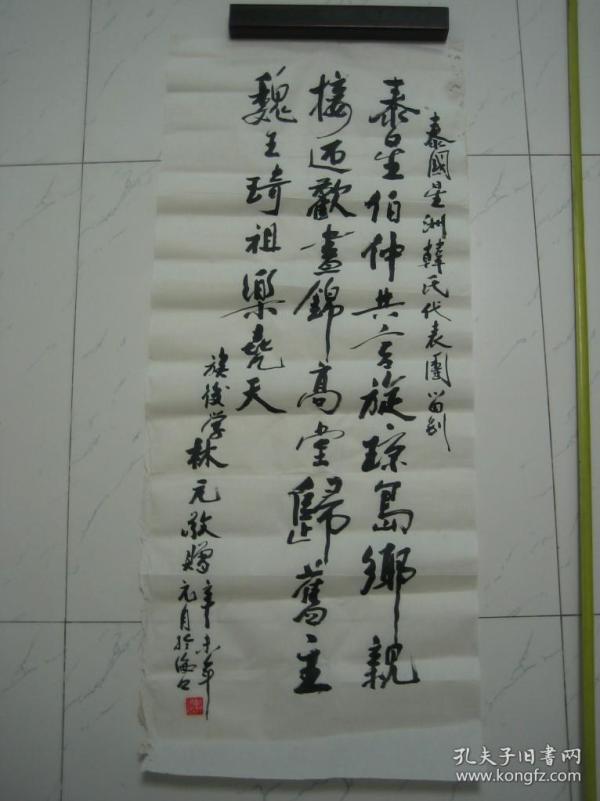 泰國星洲韓氏代表團留别
泰星伯仲共言旋琼島鄉親
接迎歡晝錦高堂歸舊主
魏王琦祖樂堯天
族後学林元敬贈
辛未年
元月於海口
孔夫子旧書网
www.kongfz.com